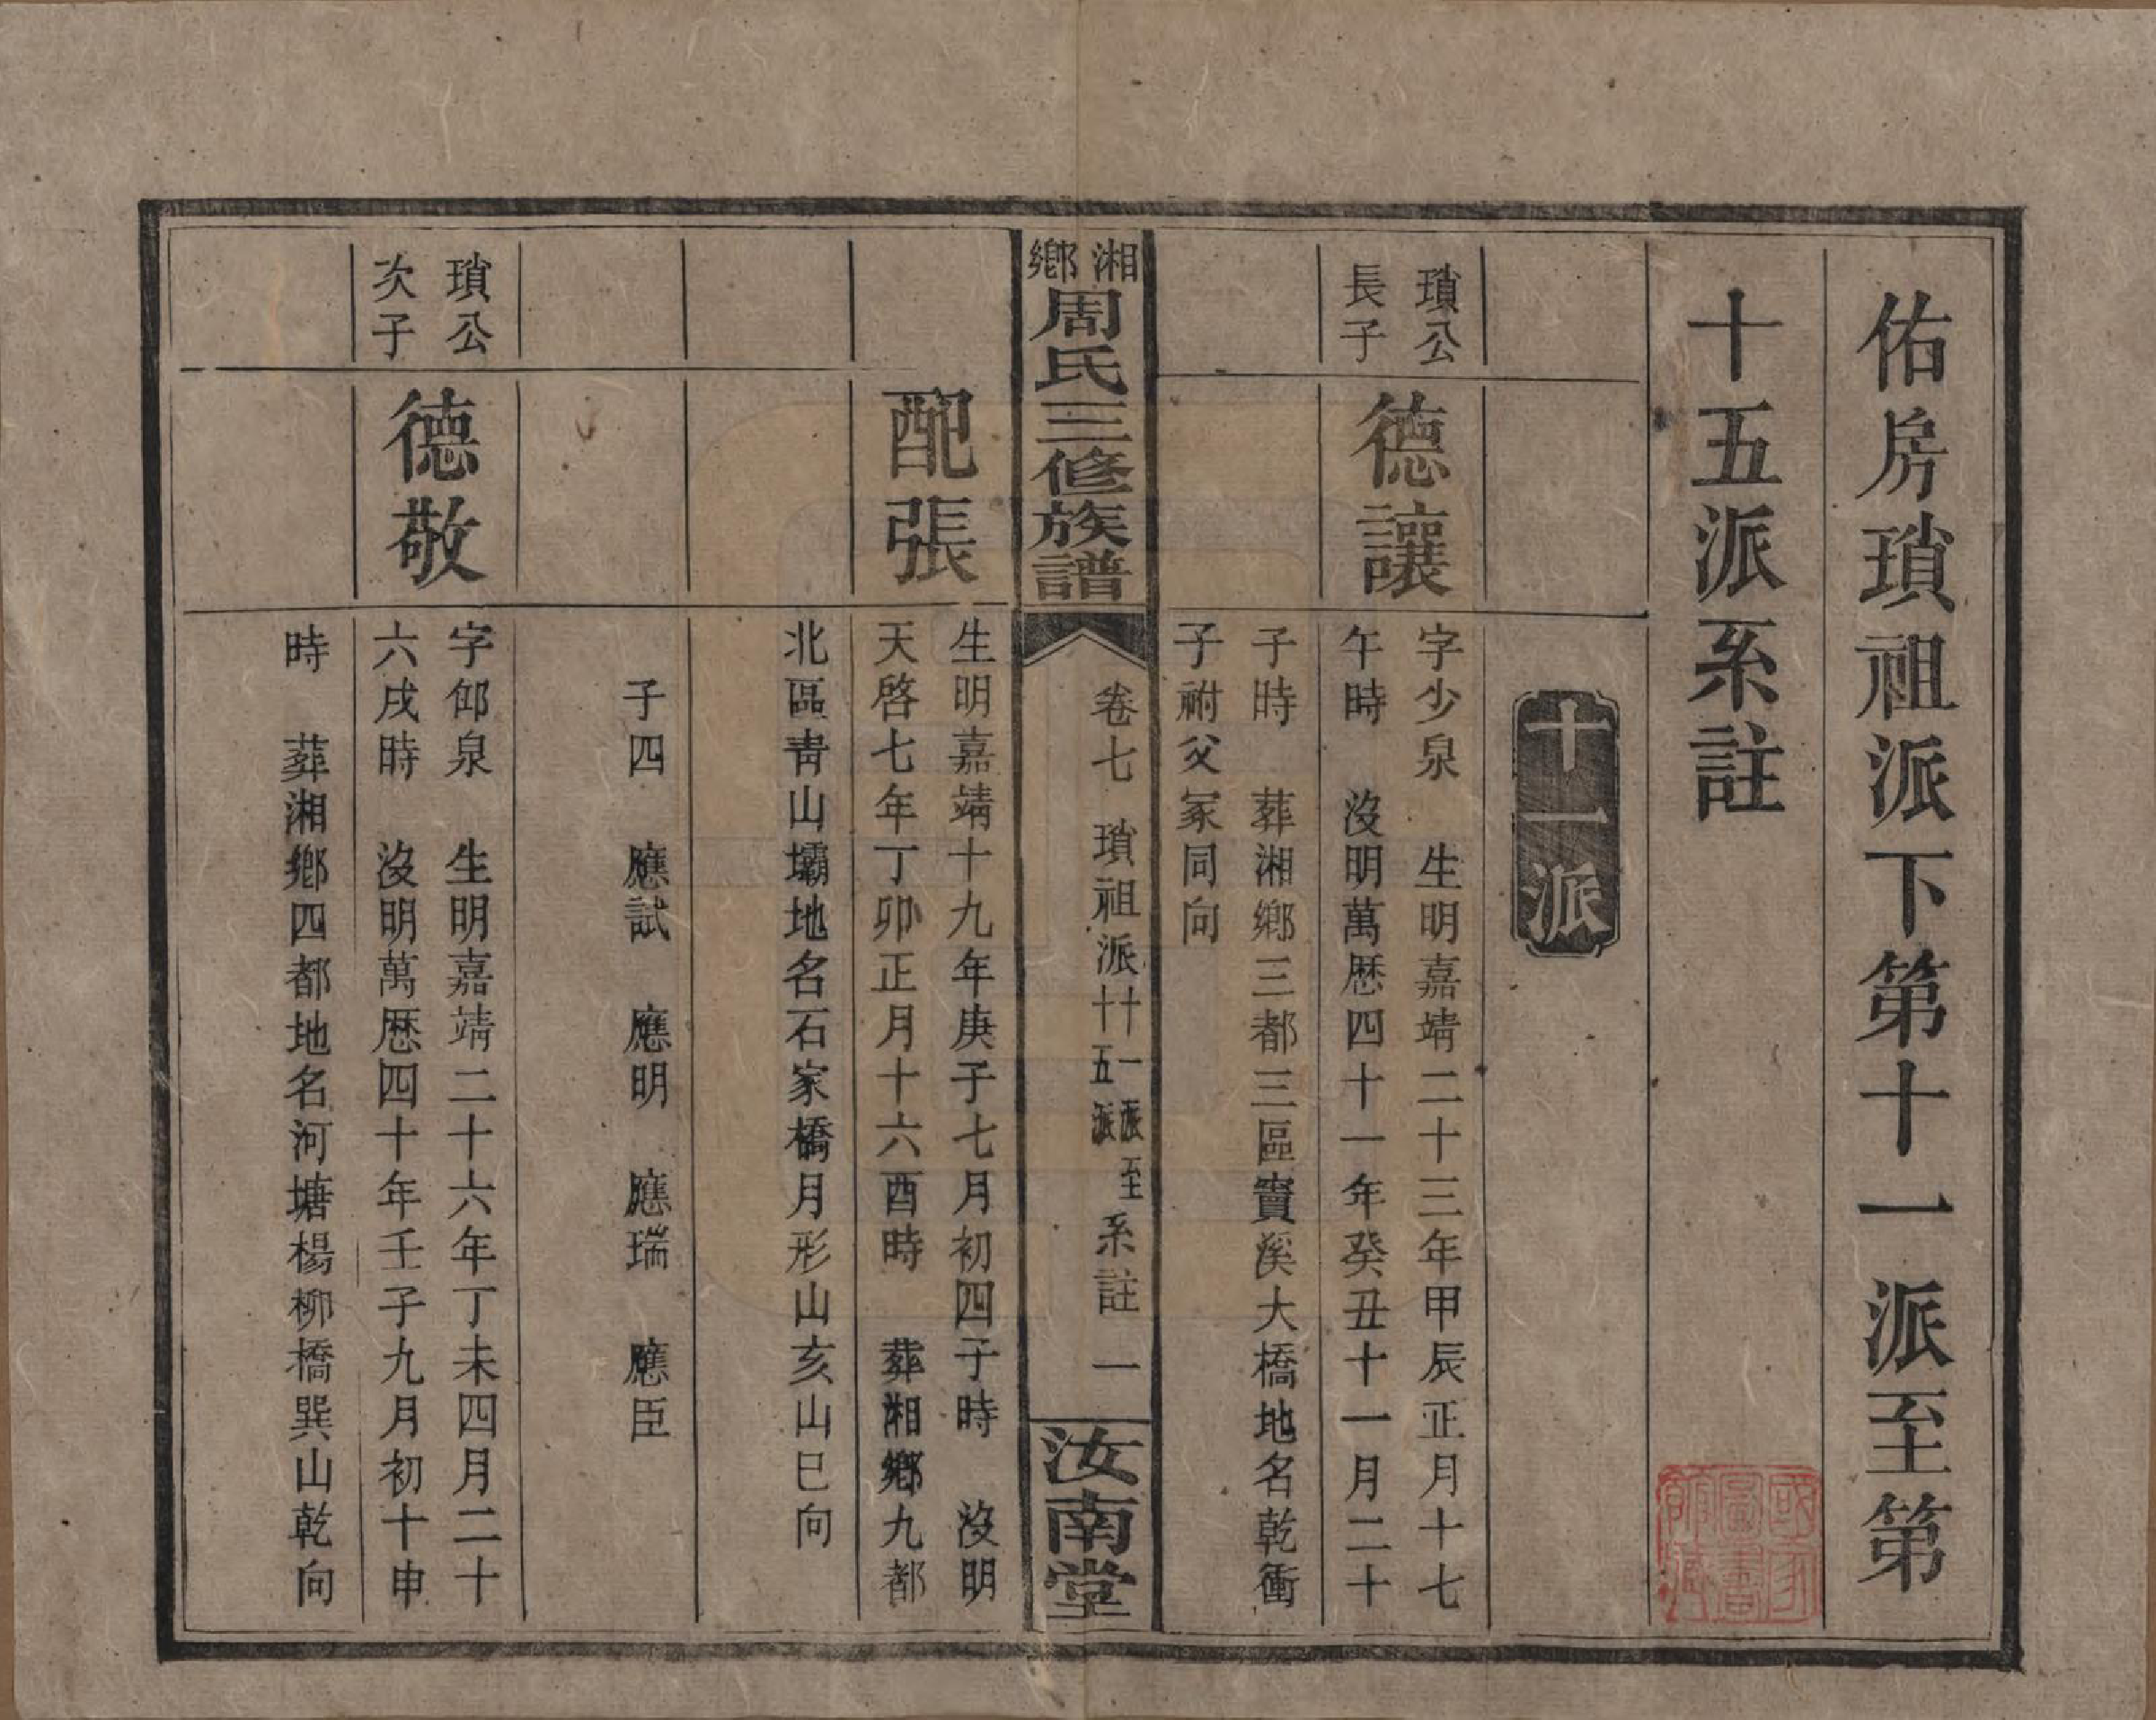 佑房瑣祖派下第十一派至第
十五派系註
十一派
瑣公
長子
德讓
字少泉　生明嘉靖二十三年甲辰正月十七
午時　沒明萬歷四十一年癸丑十一月二十
子時　葬湘鄉三都三區竇溪大橋地名乾衝
子祔父冢同向
湘鄉
周氏三修族譜
卷七　瑣祖派十一派至十五派系註　一
汝南堂
配張
生明嘉靖十九年庚子七月初四子時　沒明
天啓七年丁卯正月十六酉時　葬湘鄉九都
北區青山壩地名石家橋月形山亥山巳向
子四　應試　應明　應瑞　應臣
瑣公
次子
德敬
字仰泉　生明嘉靖二十六年丁未四月二十
六戌時　沒明萬歷四十年壬子九月初十申
時　葬湘鄉四都地名河塘楊柳橋巽山乾向
國家圖書館藏